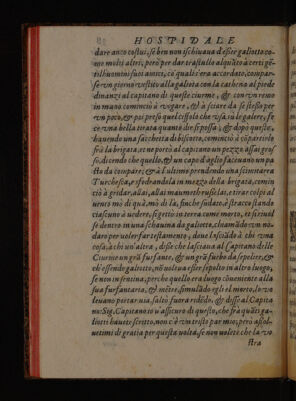 HOSPIDALE
dare anco costui, se ben non ischiuaua d'esser galiotto co-
me molti altri, però per dar trastullo alquãto à certi gẽ-
tilhuomini suoi amici, co' quali s'era accordato, compar-
se vn giorno vestito alla galiota con la cathena al piede
dinanzi al capitano di queste ciurme, & con vn remo
in mano cominciò à vogare, & à fciare da se stesso per
vn poco, & poi preso quel cifolo che vsa su le galere, fe-
ce vna bella leuata quanto dir si possa; & dopò questo,
hauendo una sacchetta di biscotto, cominciò à compartirlo
frà la brigata, et ne porcò al capitano un pezzo assai gros
so, dicendo che quello, & un capo d'aglio faceuano un pa
sto da compare; & à l'ultimo prendendo una scimitarra
Turchesca, et fodrandola in mezzo della brigata, comin
ciò à gridar,
uenti mò di quà, mò di là, finche sudato, è stracco stando
ciascuno à uedere, si gettò in terra come morto, et
se dentro in una schauina da galiotto, chiamãdo vn no-
daro per voler far testamento, doue lasciãdo à chi vna
cosa, à chi un'altra, disse che lasciaua al Capitano delle
Ciurme un grã furfante, & un grã furbo da sepelire, &
ch'essendo galiotto, nõ uoleua esser sepolto in altro luogo,
se non in sentina, perche quello era luogo cõueniente alla
sua furfantaria, & mẽtre, simulãdo egli el morto, lo vo
leuano portar uia, saltò fuora ridẽdo, & disse al Capita
no: Sig. Capitano io u'assicuro di questo, che frà quãti ga-
liotti hauete scritto, non c'è vn tristo par mio; però assol-
uetimi di gratia per questa uolta, se non uolete che la vo
stra